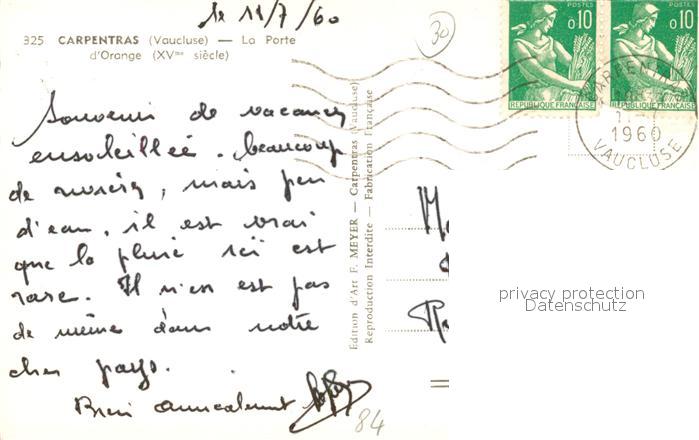 le 11/7/60
30
325 CARPENTRAS (Vaucluse) — La Porte
d'Orange (XVme siècle)
Souvenir de vacances
ensoleillée. beaucoup
de, mais peu
d'eau, il est vrai
que la pluie ici est
rare. Il n'en est pas
de même dans notre
cher pays.
Bien amicalement
84
Edition d'Art F. MEYER — Carpentras (Vaucluse)
Reproduction Interdite — Fabrication Française
POSTES
0,10
REPUBLIQUE FRANÇAISE
POSTES
0,10
REPUBLIQUE FRANÇAISE
CARPENTRAS
1960
VAUCLUSE
privacy protection
Datenschutz